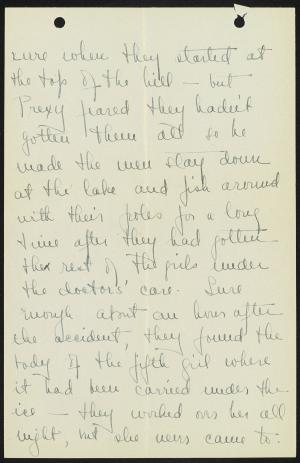 sure when they started at
the top of the hill — but
Prexy feared they hadn't
gotten them all so he
made the men stay down
at the lake and fish around
with their poles for a long
time after they had gotten
the rest of the girls under
the doctors' care. Sure
enough about an hour after
the accident, they found the
body of the fifth girl where
it had been carried under the
ice — they worked over her all
night, but she never came to: